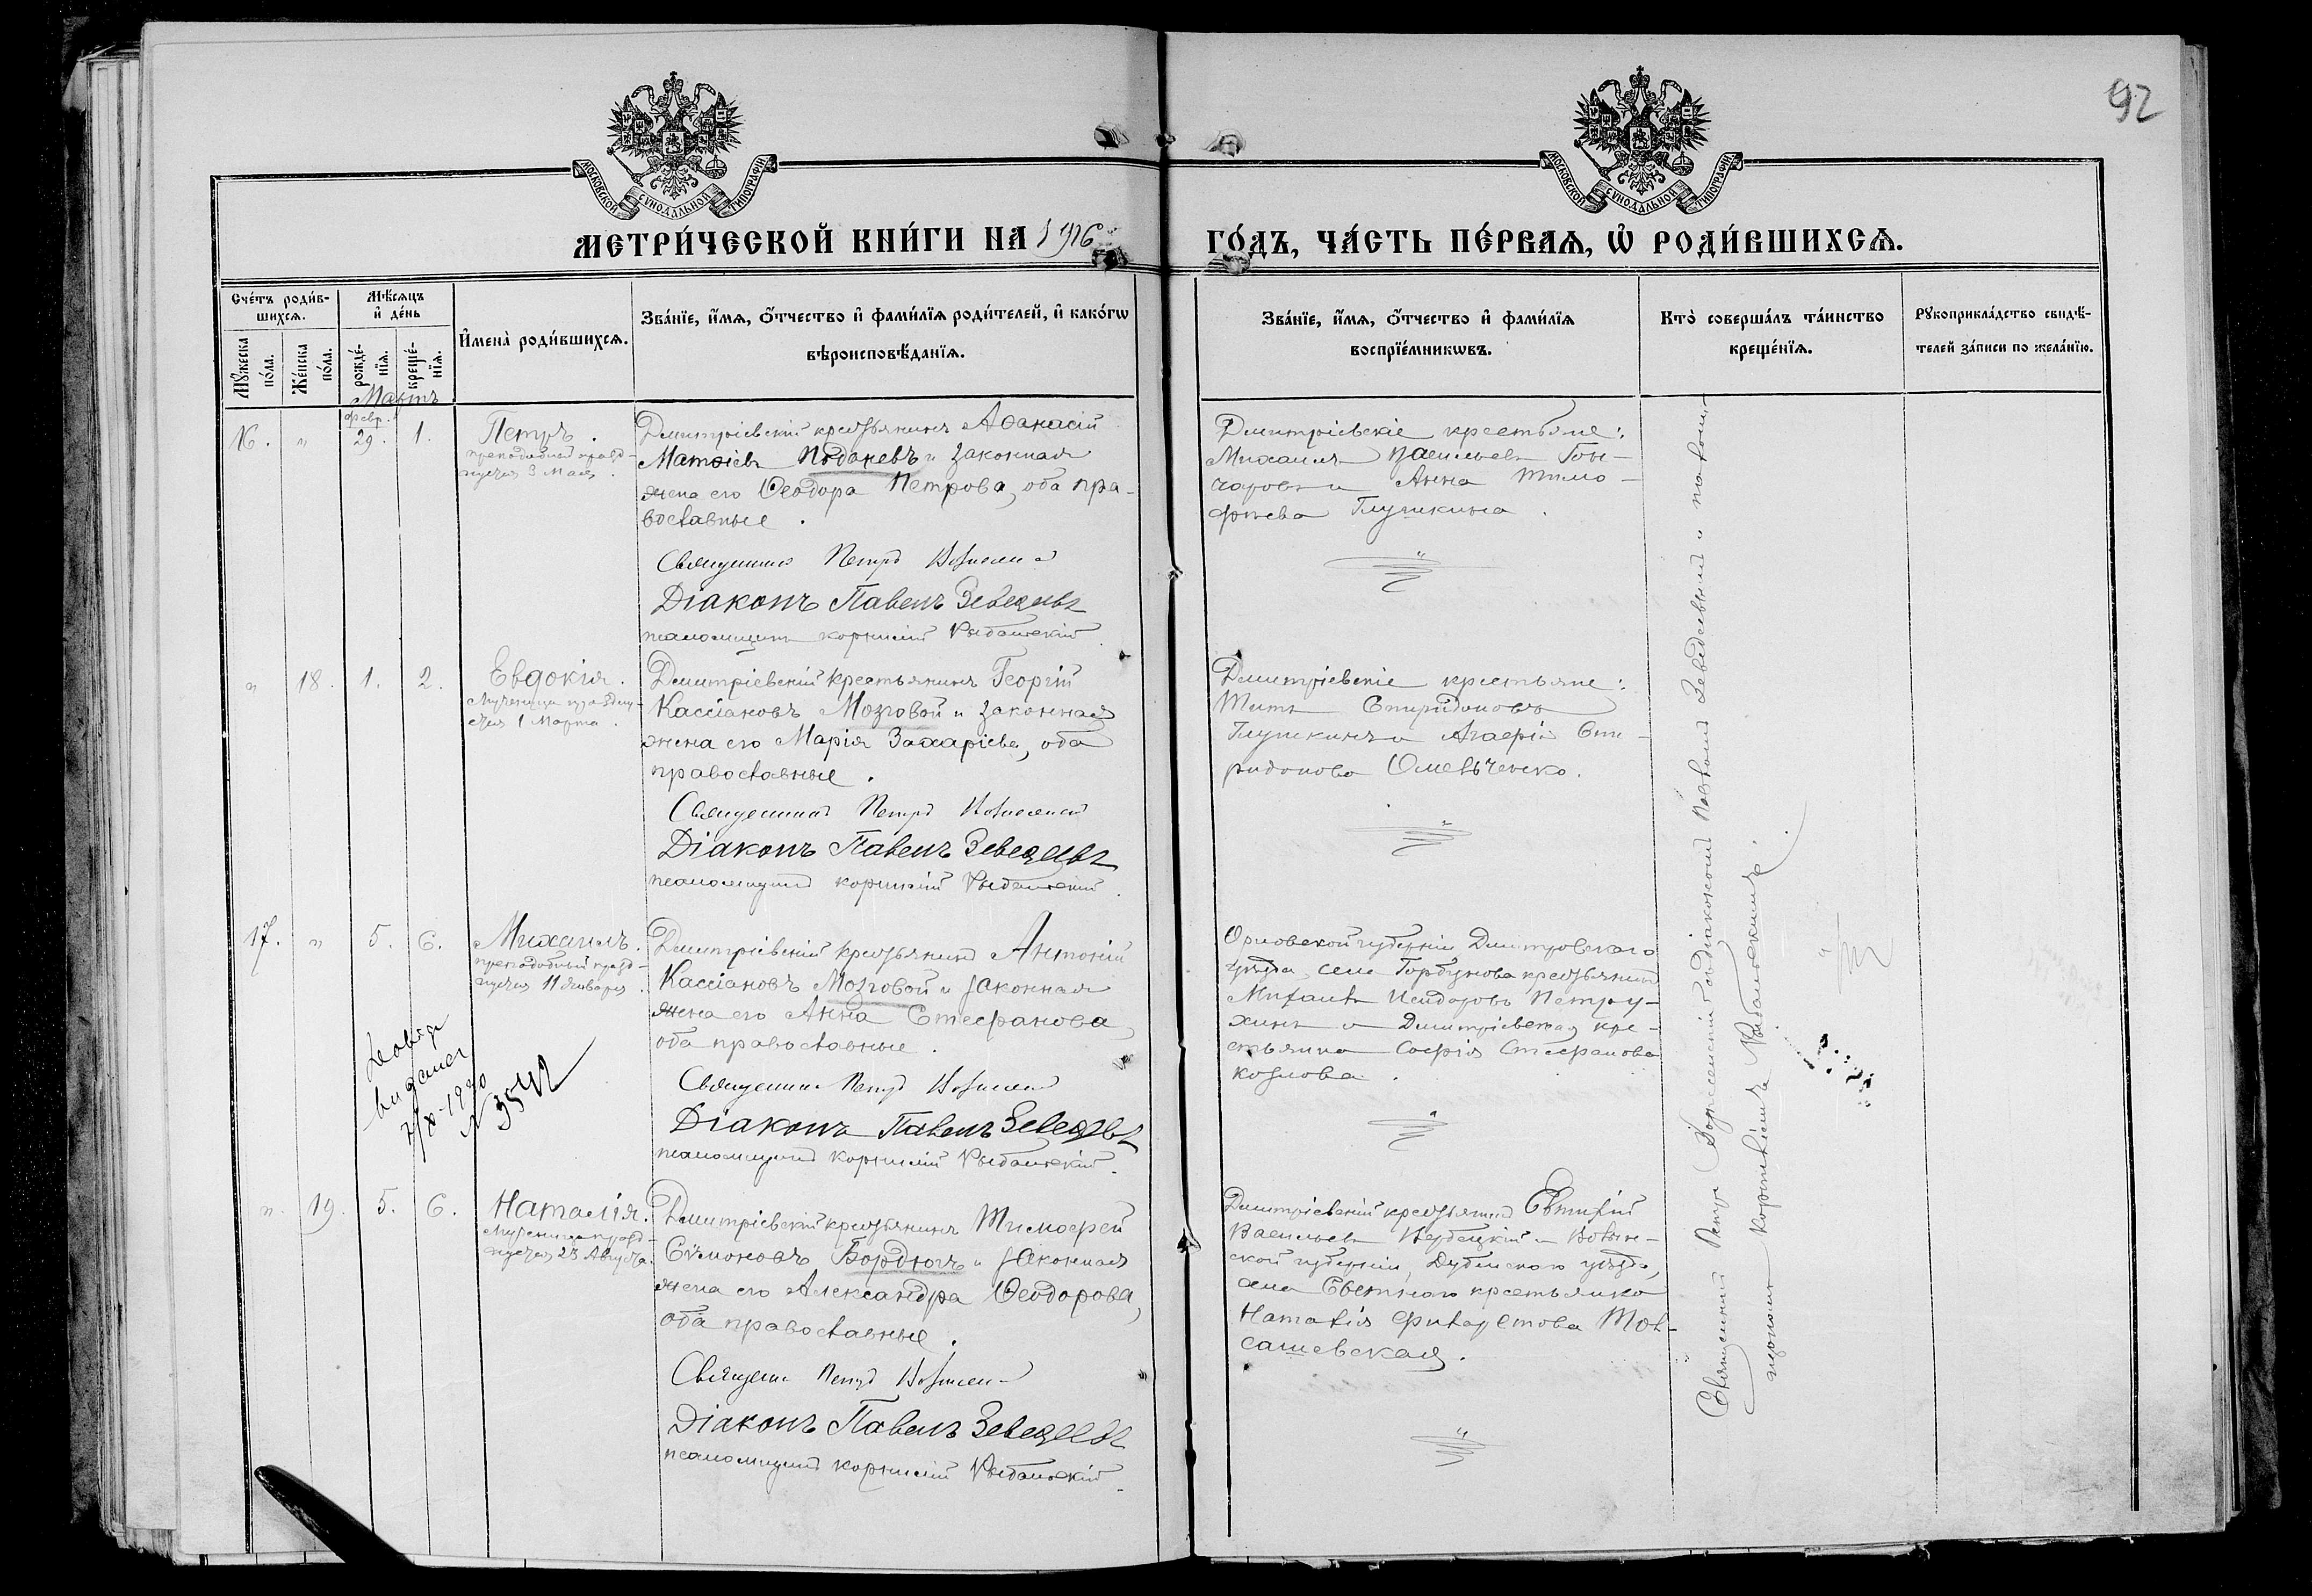 92
МОСКОВСКОЙ СѴНОДАЛЬНОЙ ТИПОГРАФІИ
МОСКОВСКОЙ СѴНОДАЛЬНОЙ ТИПОГРАФІИ
МЕТРИ́ЧЕСКОЙ КНИ́ГИ НА 1916
ГО́ДЪ, ЧА́СТЬ ПЕ́РВАЯ, Ѡ҆ РОДИ́ВШИХСѦ.
Сче́тъ роди́в-
шихсѧ.
Мꙋ́жеска по́ла.
Же́нска по́ла.
Мѣ́сѧцъ
и҆ де́нь
рожде́-
нїѧ.
креще́-
нїѧ.
И҆мена̀ роди́вшихсѧ.
Зва́нїе, и҆́мѧ, ѻ҆́тчество и҆ фами́лїѧ роди́телей, и҆ како́гѡ
вѣроисповѣ́данїѧ.
Зва́нїе, и҆́мѧ, ѻ҆́тчество и҆ фами́лїѧ
воспрїе́мникѡвъ.
Кто̀ соверша́лъ та́инство
креще́нїѧ.
Рꙋкоприкла́дство свидѣ́-
телей за́писи по жела́нїю.
Мартъ
16. " февр. 29. 1.
Петръ.
преподобнаго празд-
нуется 3 Мая.
Димитріевскій крестьянинъ Аѳанасій
Матѳіевъ и законная
жена его Ѳеодора Петрова, оба пра-
вославные.
Священникъ Петръ
Діаконъ Павелъ Зеведеевъ
псаломщикъ Корнилій Рыбальскій
Димитріевскіе крестьяне:
Михаилъ Васильевъ Гон-
чаровъ и Анна Тимо-
феева Глушкина.
" 18. 1. 2.
Евдокія.
Мученицы праздну-
ется 1 Марта.
Димитріевскій крестьянинъ Георгій
Кассіановъ Мозговой и законная
жена его Марія Захаріева, оба
православные.
Священникъ Петръ
Діаконъ Павелъ Зеведеевъ
псаломщикъ Корнилій Рыбальскій.
Димитріевскіе крестьяне:
Титъ Спиридоновъ
Глушкинъ и Агафія Спи-
ридонова Омельченко.
17. " 5. 6.
Михаилъ.
преподобный празд-
нуется 11 Января.
Димитріевскій крестьянинъ Антоній
Кассіановъ Мозговой и законная
жена его Анна Стефанова,
оба православные.
Священникъ Петръ
Діаконъ Павелъ Зеведеевъ
псаломщикъ Корнилій Рыбальскій.
Орловской губерніи Дмитровскаго
уѣзда, села Горбунова крестьянинъ
Михаилъ Исидоровъ Петру-
хинъ и Димитріевская кре-
стьянка Софія Стефанова
Козлова.
выдана
№ 3542
". 19. 5. 6.
Наталія.
Мученица празд-
нуется 26 Августа.
Димитріевскій крестьянинъ Тимофей
Сѵмоновъ Бордюгъ и законная
жена его Александра Ѳеодорова,
оба православные.
Священникъ Петръ
Діаконъ Павелъ Зеведеевъ
псаломщикъ Корнилій Рыбальскій.
Димитріевскій крестьянинъ Евтихій
Васильевъ и Волын-
ской губерніи, Дубенскаго уѣзда,
села крестьянка
Наталія Филаретова
Священникъ Петръ съ діакономъ Павломъ Зеведеевымъ и псалом-
щикомъ Корниліемъ Рыбальскимъ.